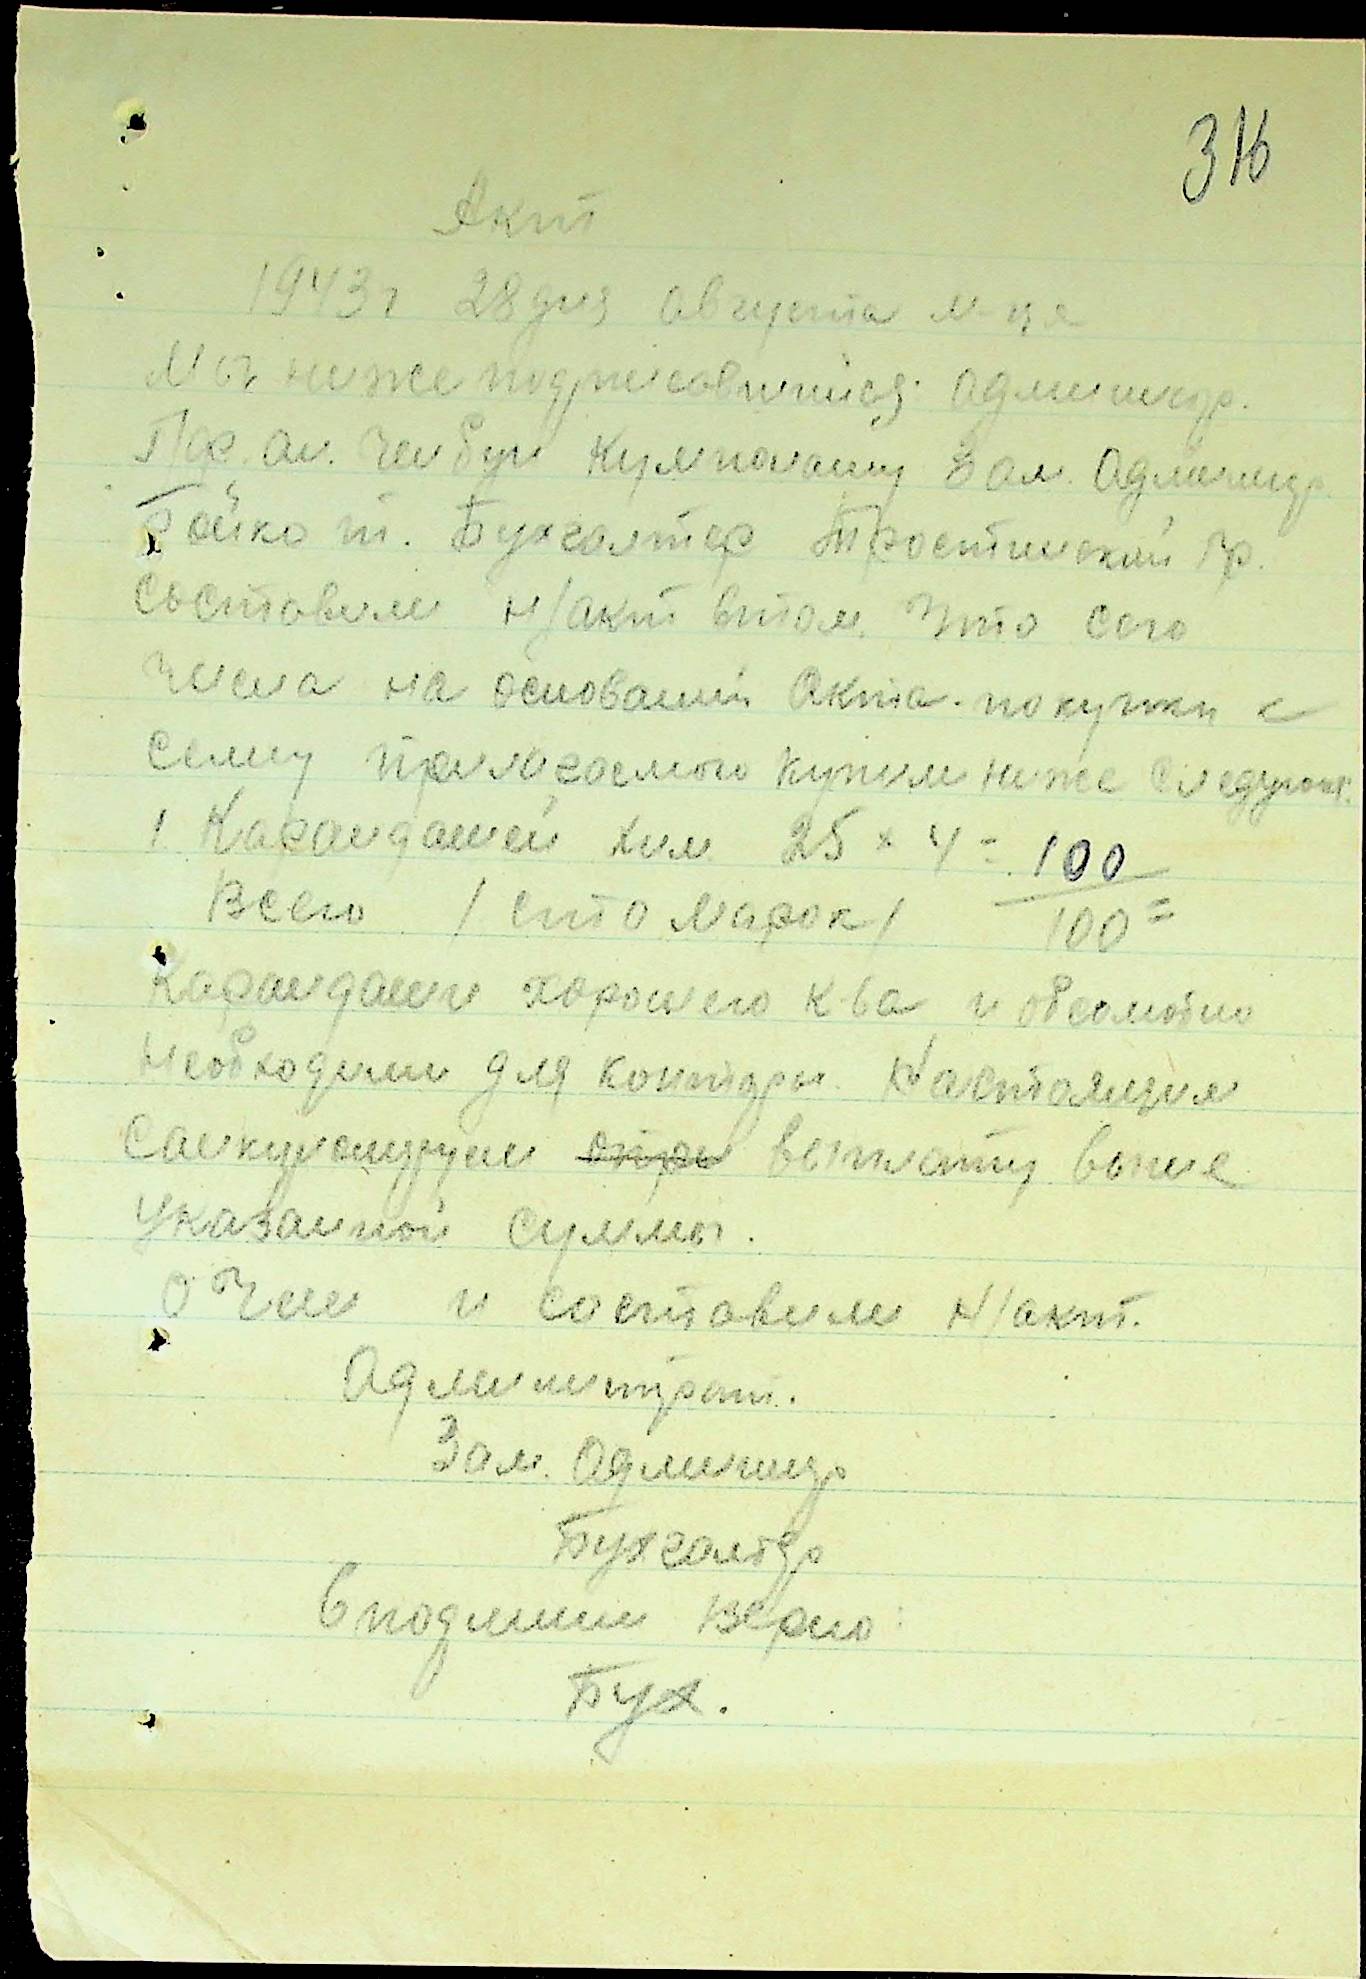 316
Акт
1943 г 28 дня августа м-ца
Мы ниже подписавшиися админстр.
Зам. Админстр
Бойко т. Бухгалтер Тростинский Гр.
составили н/акт втом. Что сего
числа на оснований Акта. покупки к
сему прилагаемого купили ниже следующ.
1 Карандашей хим 25 х 4 = 100
Всего / сто марок / 100=
Карандаши хорошего к-ва и
необходими для конторы. Настоящим
выплату выше
указанной суммы.
О Чем и составили н/акт.
Администрат.
Зам. Админстр
Бухгалтер
Верно:
Бух.